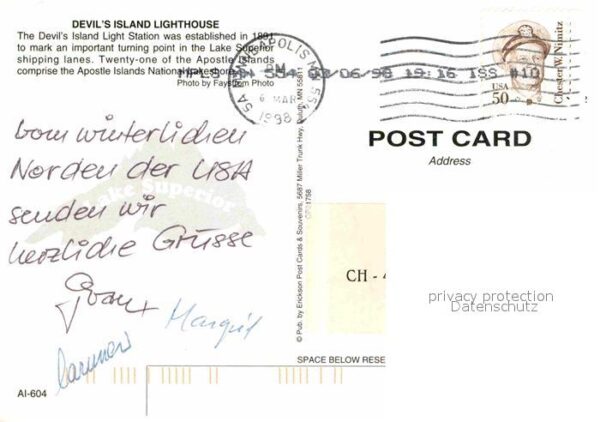 DEVIL'S ISLAND LIGHTHOUSE
The Devil's Island Light Station was established in 1891
to mark an important turning point in the Lake Superior
shipping lanes. Twenty-one of the Apostle Islands
comprise the Apostle Islands National Lakeshore.
Photo by Faystrom Photo
MPLS MN 554 03/06/98 19:16 ISS #10
PM
6 MAR
1998
USA
50
Chester W. Nimitz
POST CARD
Address
vom winterlichen
Norden der USA
senden wir
herzliche Grüsse
Margrit
Lake Superior
© Pub. by Erickson Post Cards & Souvenirs, 5687 Miller Trunk Hwy, Duluth, MN 55811
CH - 4
privacy protection
Datenschutz
SPACE BELOW RESE
AI-604